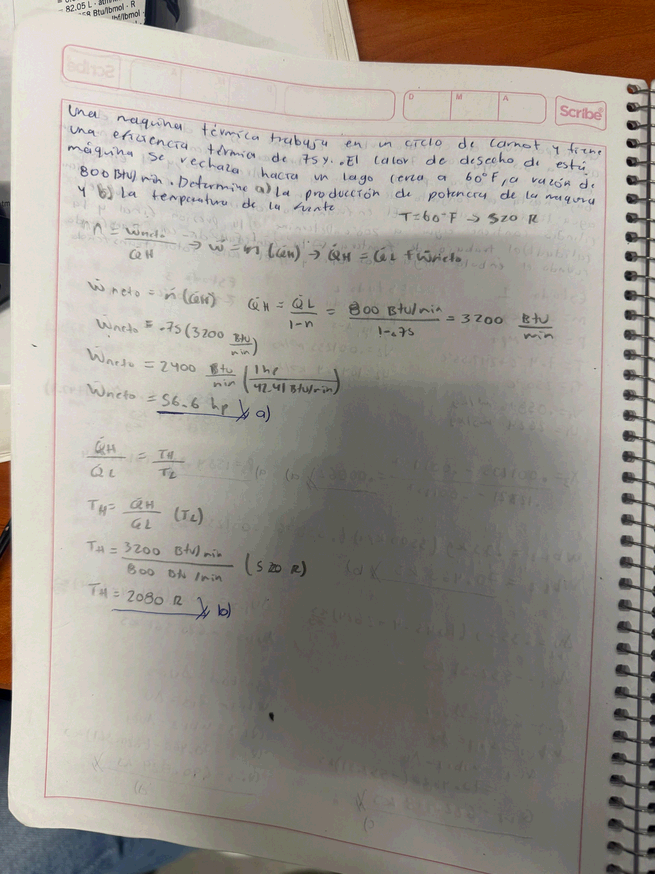 82.05 L · atm/
Btu/lbmol · R
D M A
Scribe
Una maquina térmica trabaja en un ciclo de Carnot y tiene
una eficiencia térmia de 75%. El calor de desecho de está
máquina se rechaza hacia un lago cerca a 60°F, a razón de
800 Btu/min. Determine a) La producción de potencia de la maquina
y b) La temperatura de la fuente
T=60°F → 520 R
n = Ẇneto/Q̇H → Ẇ = n (Q̇H) → Q̇H = Q̇L + Ẇneto
Ẇneto = n (Q̇H) Q̇H = Q̇L/1-n = 800 Btu/min/1-.75 = 3200 Btu/min
Ẇneto = .75 (3200 Btu/min)
Ẇneto = 2400 Btu/min (1hp/42.41 Btu/min)
Ẇneto = 56.6 hp a)
Q̇H/Q̇L = TH/TL
TH = Q̇H/Q̇L (TL)
TH = 3200 Btu/min/800 Btu/min (520 R)
TH = 2080 R b)